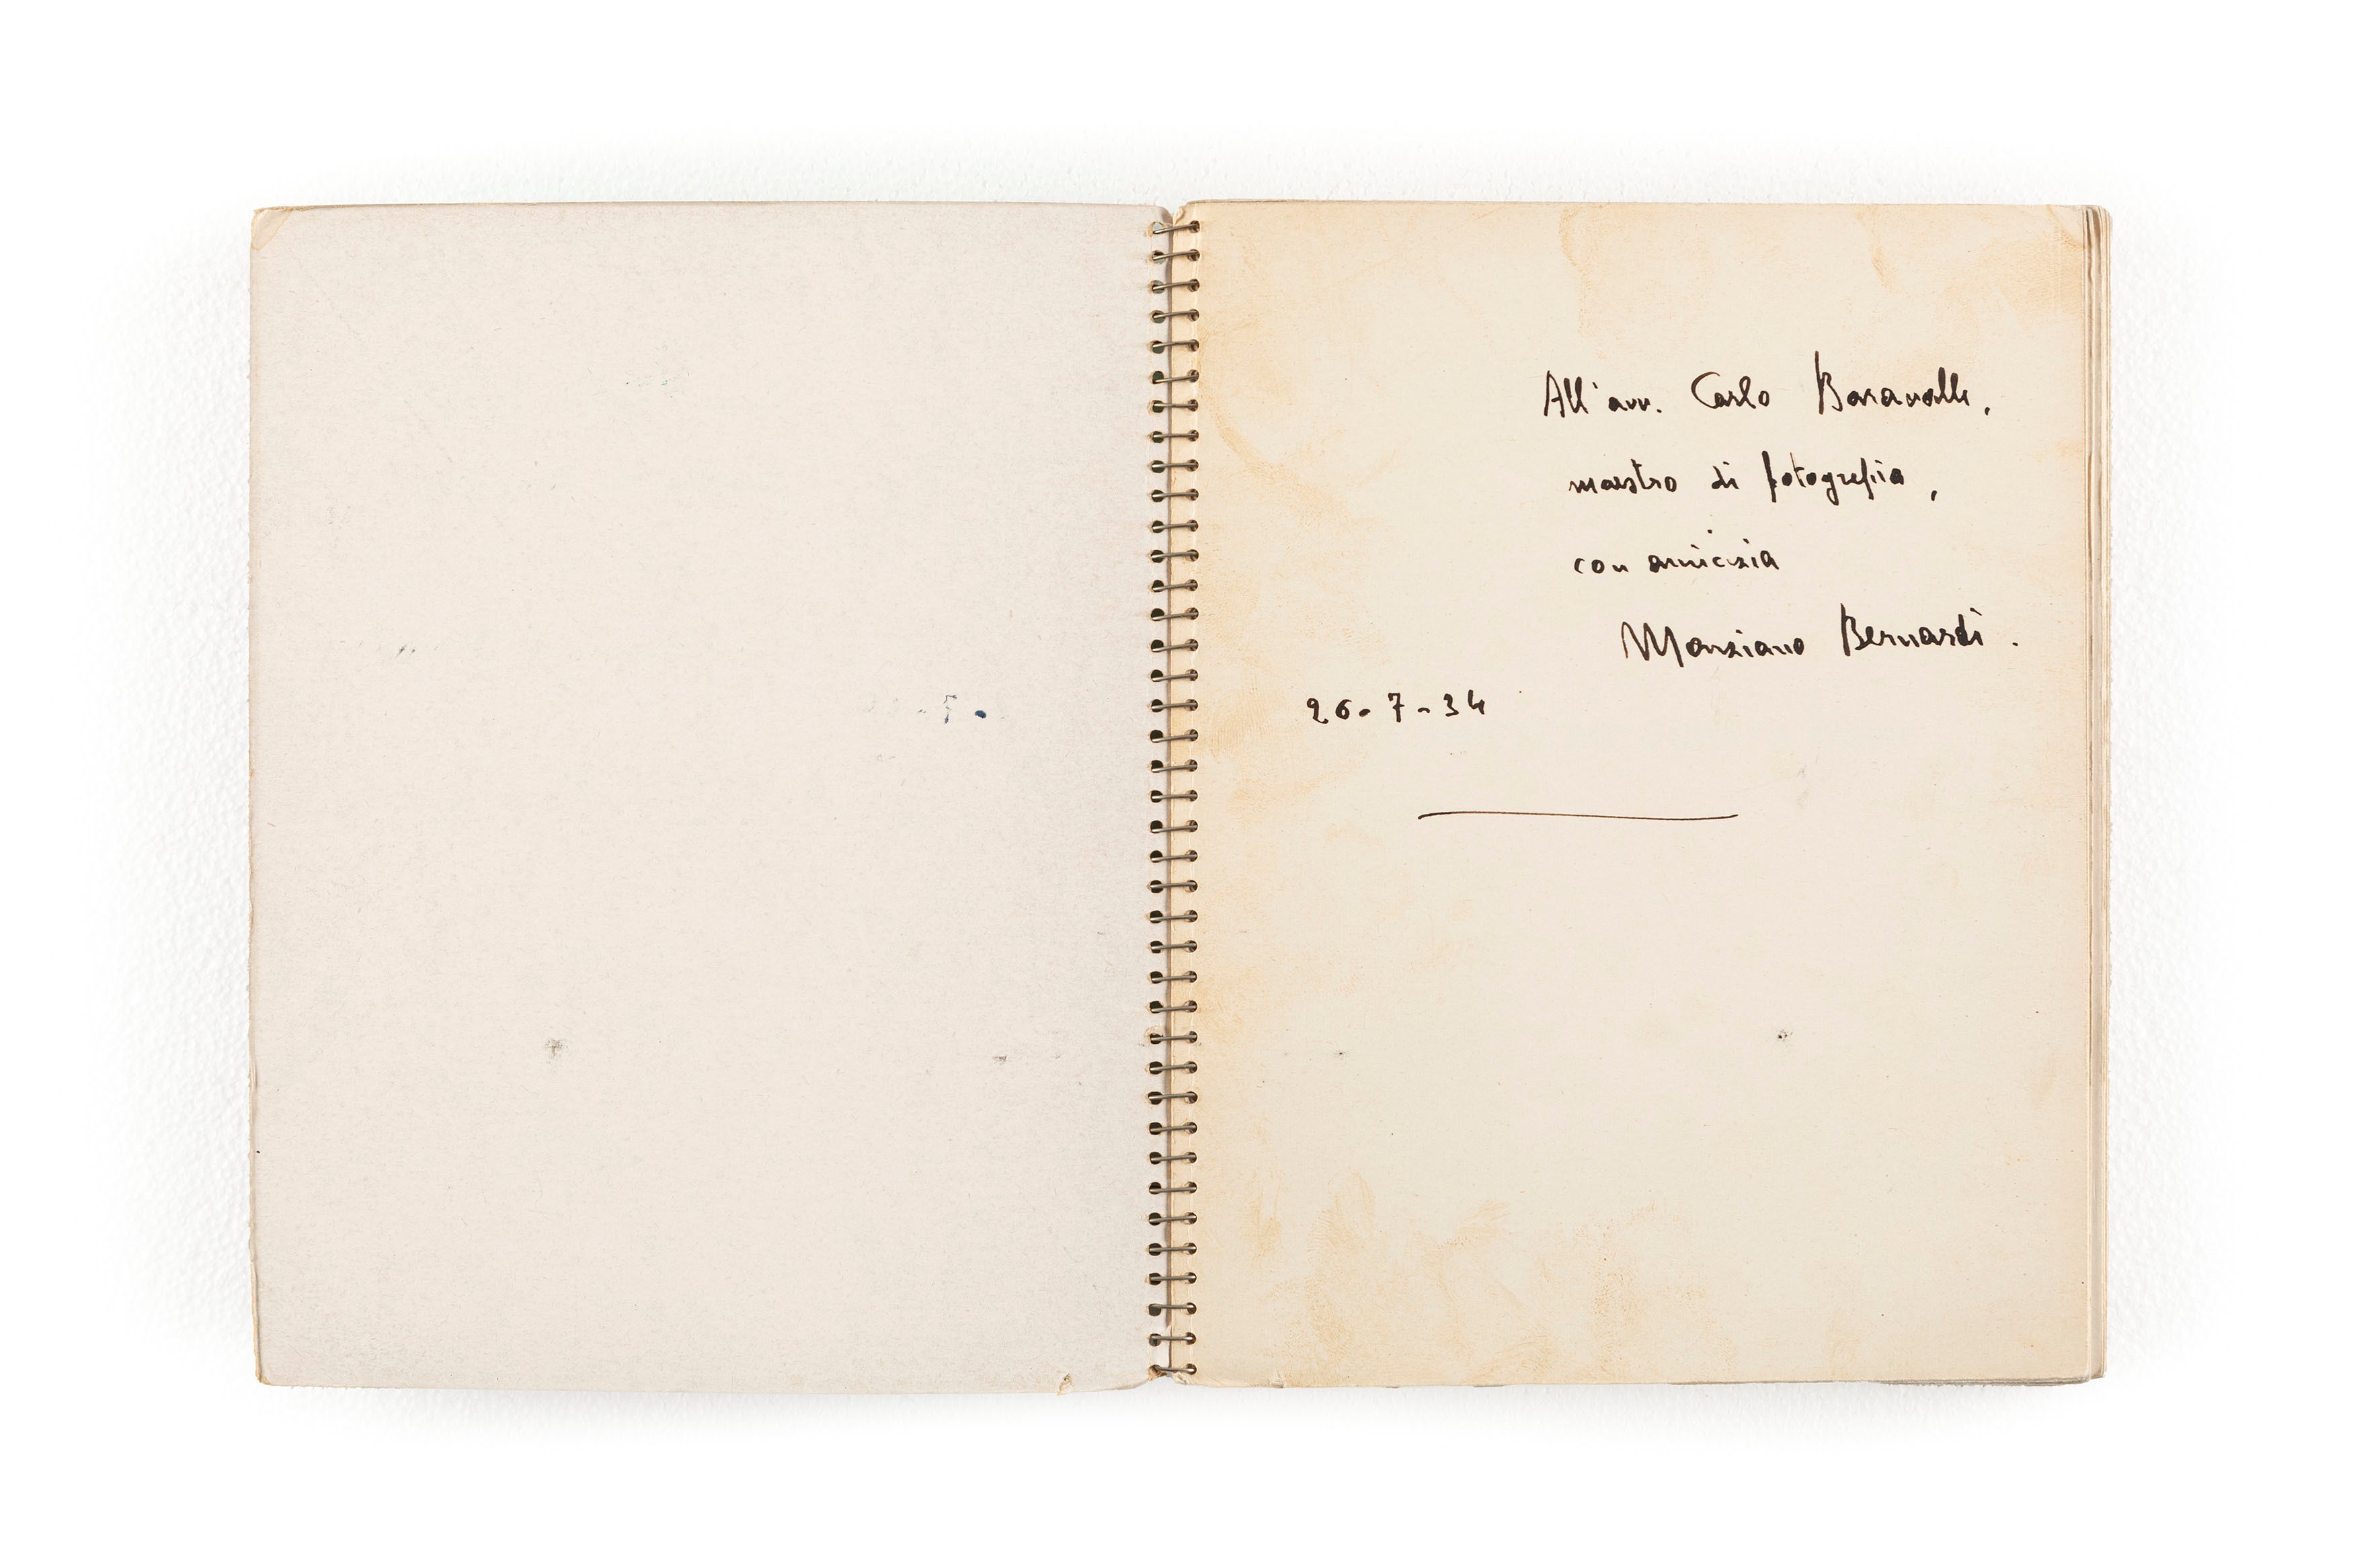 All'avv. Carlo Baravalle,
maestro di fotografia,
con amicizia
Marziano Bernardi.
26-7-34